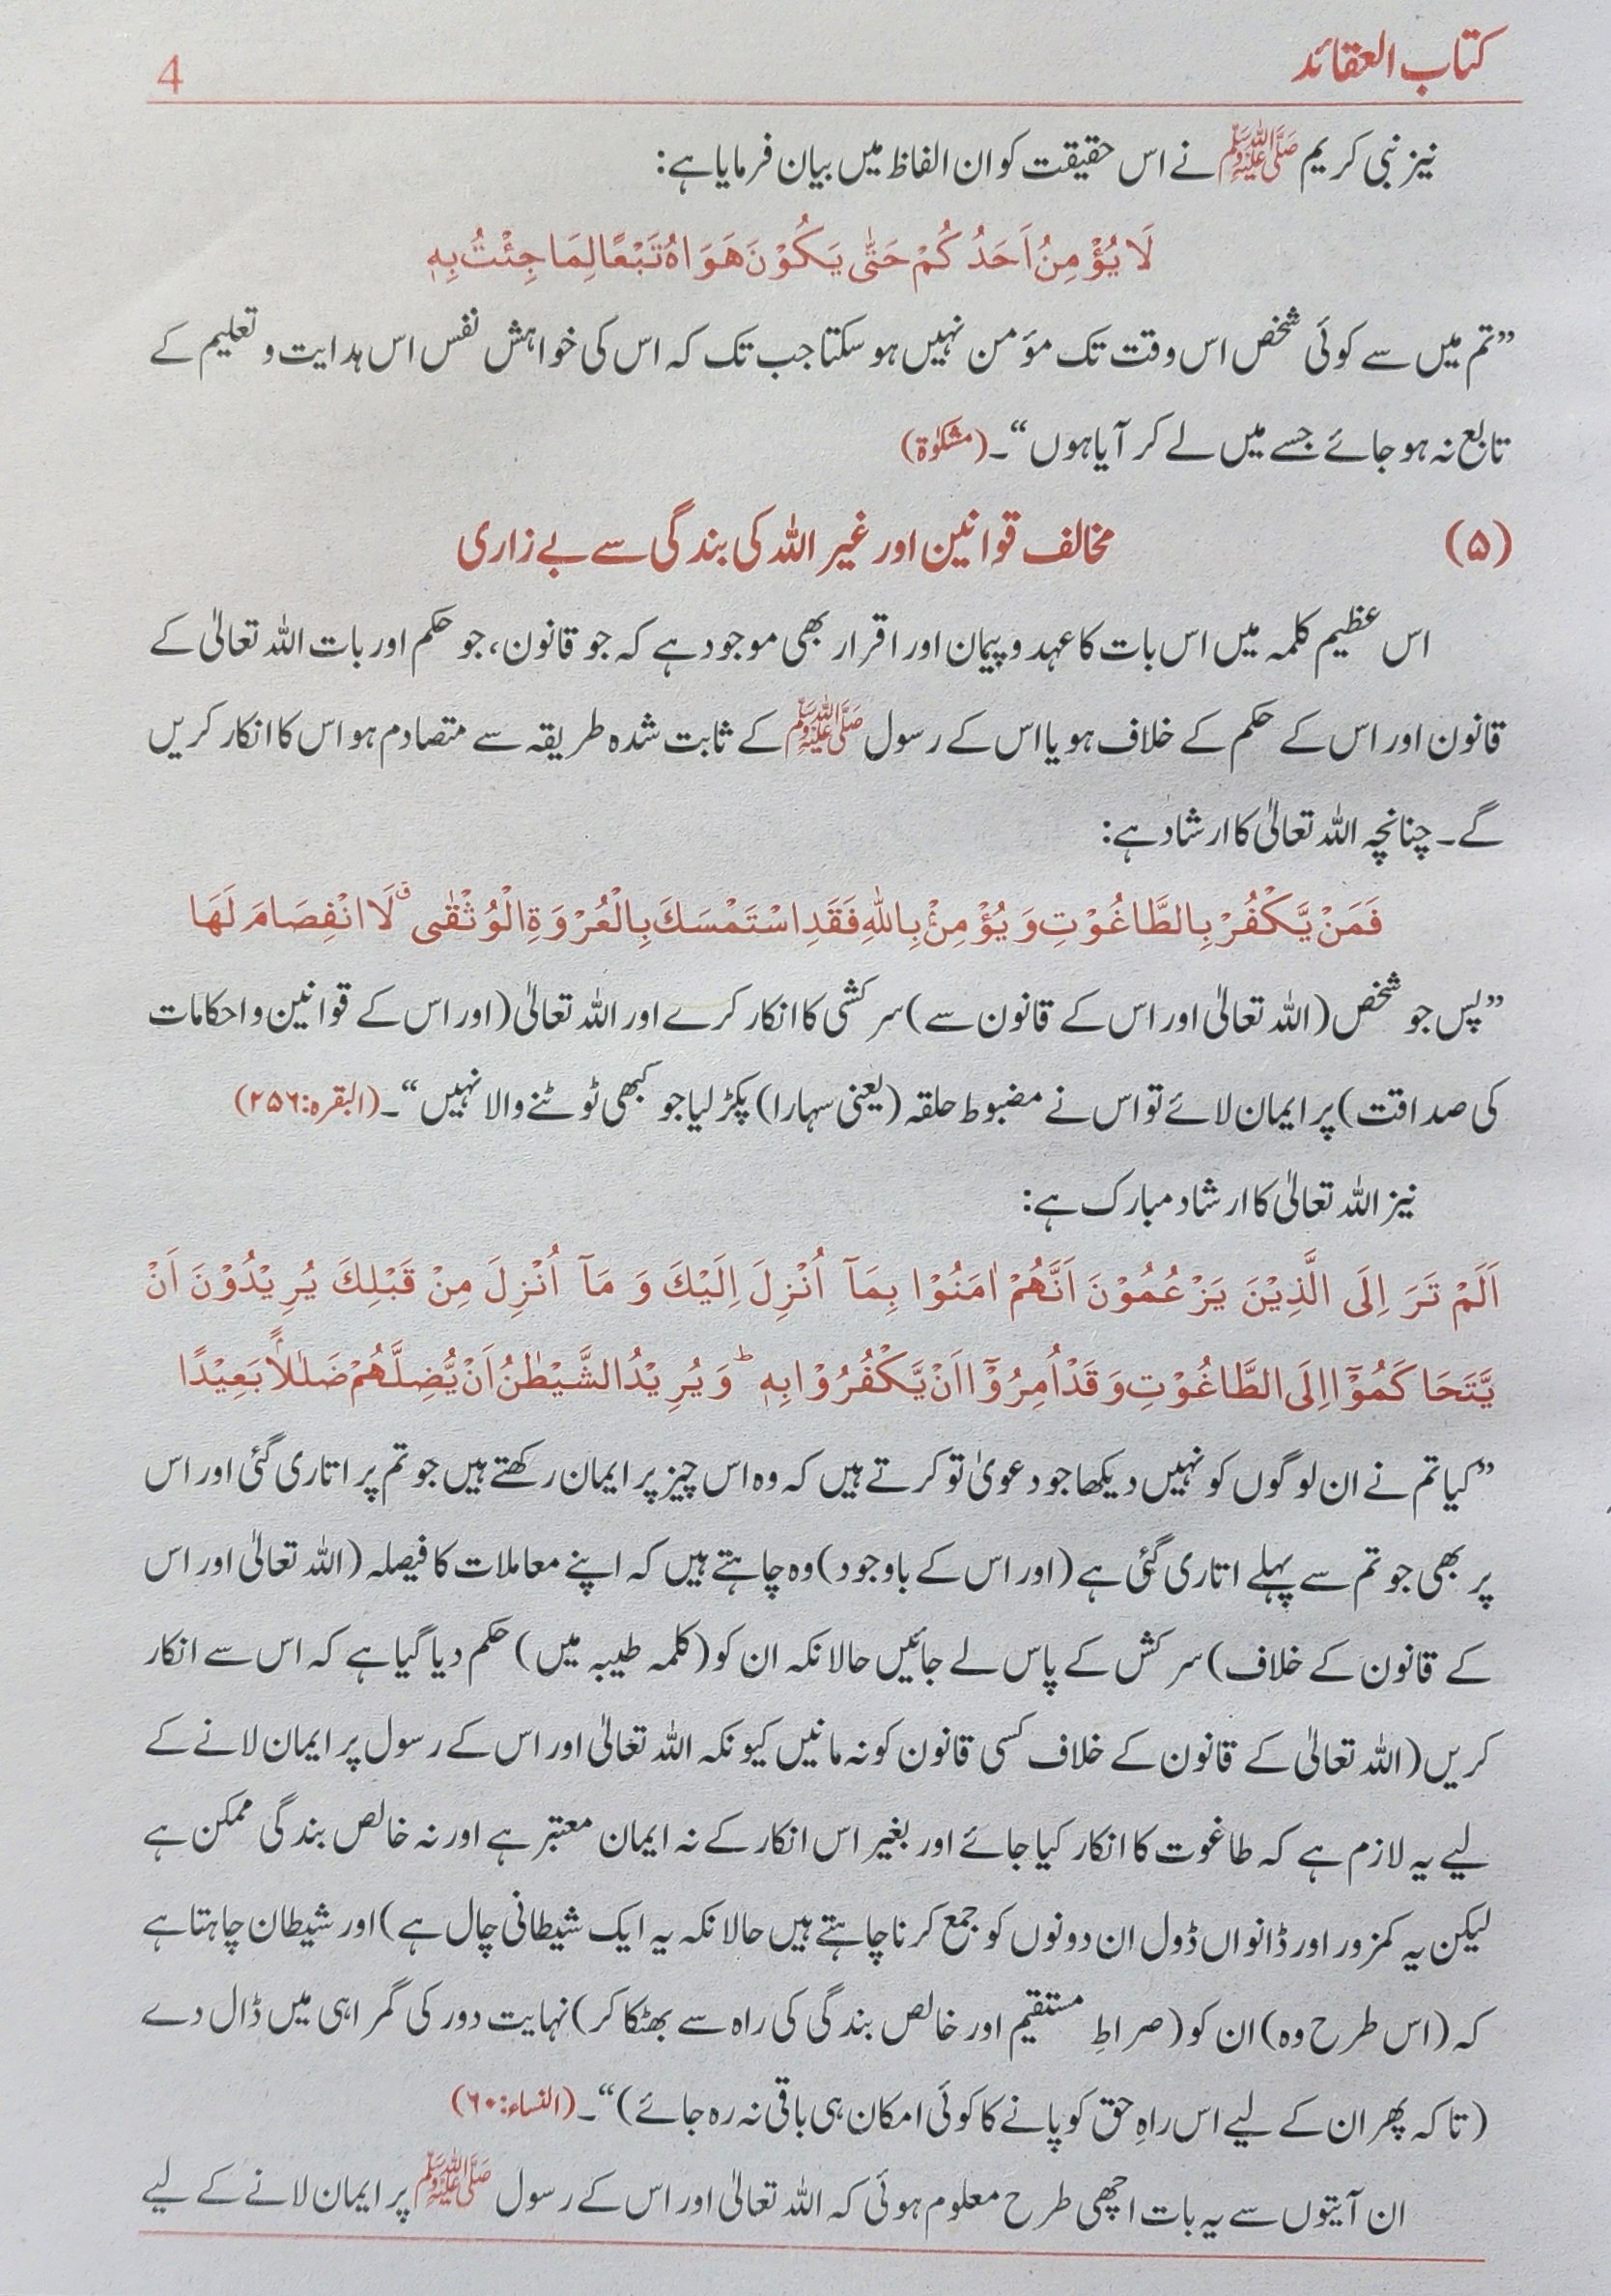 کتاب العقائد
4
نیز نبی کریم ﷺ نے اس حقیقت کو ان الفاظ میں بیان فرمایا ہے:
لَا يُؤْمِنُ اَحَدُكُمْ حَتّٰى يَكُوْنَ هَوَاهُ تَبْعًا لِمَا جِئْتُ بِهٖ
”تم میں سے کوئی شخص اس وقت تک مؤمن نہیں ہو سکتا جب تک کہ اس کی خواہش نفس اس ہدایت و تعلیم کے
تابع نہ ہو جائے جسے میں لے کر آیا ہوں“۔ (مشکوٰۃ)
(۵) مخالف قوانین اور غیر اللہ کی بندگی سے بے زاری
اس عظیم کلمہ میں اس بات کا عہد و پیمان اور اقرار بھی موجود ہے کہ جو قانون، جو حکم اور بات اللہ تعالیٰ کے
قانون اور اس کے حکم کے خلاف ہو یا اس کے رسول ﷺ کے ثابت شدہ طریقہ سے متصادم ہو اس کا انکار کریں
گے۔ چنانچہ اللہ تعالیٰ کا ارشاد ہے:
فَمَنْ يَّكْفُرْ بِالطَّاغُوْتِ وَ يُؤْمِنْۢ بِاللّٰهِ فَقَدِ اسْتَمْسَكَ بِالْعُرْوَةِ الْوُثْقٰى ۗ لَا انْفِصَامَ لَهَا
”پس جو شخص (اللہ تعالیٰ اور اس کے قانون سے) سرکشی کا انکار کرے اور اللہ تعالیٰ (اور اس کے قوانین و احکامات
کی صداقت) پر ایمان لائے تو اس نے مضبوط حلقہ (یعنی سہارا) پکڑ لیا جو کبھی ٹوٹنے والا نہیں“۔ (البقرہ: ۲۵۶)
نیز اللہ تعالیٰ کا ارشاد مبارک ہے:
اَلَمْ تَرَ اِلَى الَّذِيْنَ يَزْعُمُوْنَ اَنَّهُمْ اٰمَنُوْا بِمَاۤ اُنْزِلَ اِلَيْكَ وَ مَاۤ اُنْزِلَ مِنْ قَبْلِكَ يُرِيْدُوْنَ اَنْ
يَّتَحَاكَمُوْۤا اِلَى الطَّاغُوْتِ وَ قَدْ اُمِرُوْۤا اَنْ يَّكْفُرُوْا بِهٖ ؕ وَ يُرِيْدُ الشَّيْطٰنُ اَنْ يُّضِلَّهُمْ ضَلٰلًاۢ بَعِيْدًا
”کیا تم نے ان لوگوں کو نہیں دیکھا جو دعویٰ تو کرتے ہیں کہ وہ اس چیز پر ایمان رکھتے ہیں جو تم پر اتاری گئی اور اس
پر بھی جو تم سے پہلے اتاری گئی ہے (اور اس کے باوجود) وہ چاہتے ہیں کہ اپنے معاملات کا فیصلہ (اللہ تعالیٰ اور اس
کے قانون کے خلاف) سرکش کے پاس لے جائیں حالانکہ ان کو (کلمہ طیبہ میں) حکم دیا گیا ہے کہ اس سے انکار
کریں (اللہ تعالیٰ کے قانون کے خلاف کسی قانون کو نہ مانیں کیونکہ اللہ تعالیٰ اور اس کے رسول پر ایمان لانے کے
لیے یہ لازم ہے کہ طاغوت کا انکار کیا جائے اور بغیر اس انکار کے نہ ایمان معتبر ہے اور نہ خالص بندگی ممکن ہے
لیکن یہ کمزور اور ڈانواں ڈول ان دونوں کو جمع کرنا چاہتے ہیں حالانکہ یہ ایک شیطانی چال ہے) اور شیطان چاہتا ہے
کہ (اس طرح وہ) ان کو (صراطِ مستقیم اور خالص بندگی کی راہ سے بھٹکا کر) نہایت دور کی گمراہی میں ڈال دے
(تاکہ پھر ان کے لیے اس راہِ حق کو پانے کا کوئی امکان ہی باقی نہ رہ جائے)“۔ (النساء: ۶۰)
ان آیتوں سے یہ بات اچھی طرح معلوم ہوئی کہ اللہ تعالیٰ اور اس کے رسول ﷺ پر ایمان لانے کے لیے